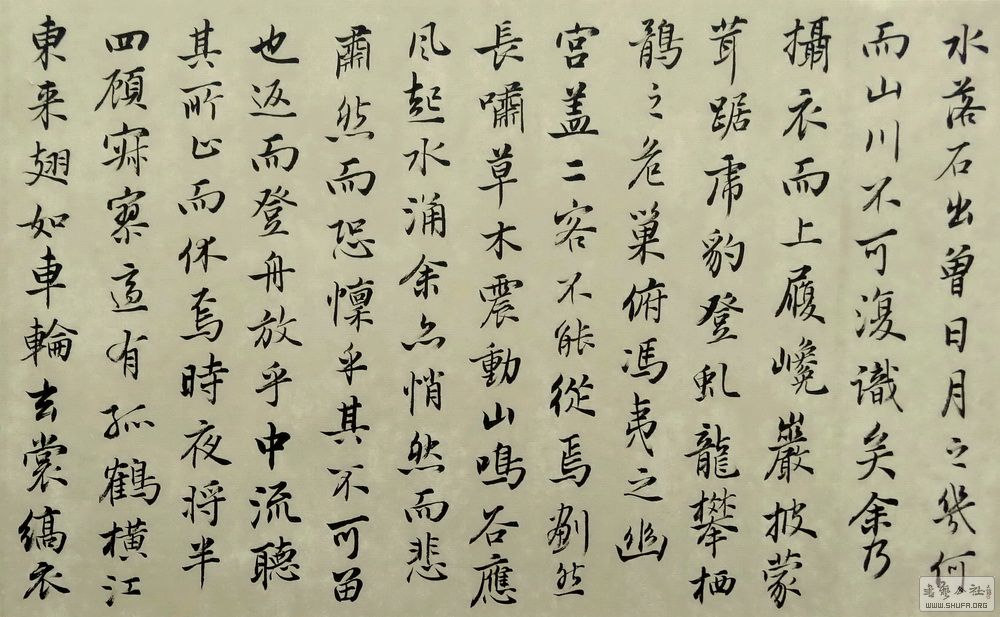 水落石出曾日月之幾何
而山川不可復識矣余乃
攝衣而上履巉巖披蒙
茸踞虎豹登虬龍攀栖
鶻之危巢俯馮夷之幽
宮盖二客不能從焉劃然
長嘯草木震動山鳴谷應
風起水涌余亦悄然而悲
肅然而恐懍乎其不可留
也返而登舟放乎中流聽
其所止而休焉時夜将半
四顧寂寥適有孤鶴横江
東来翅如車輪玄裳縞衣
書藝公社
WWW.SHUFA.ORG